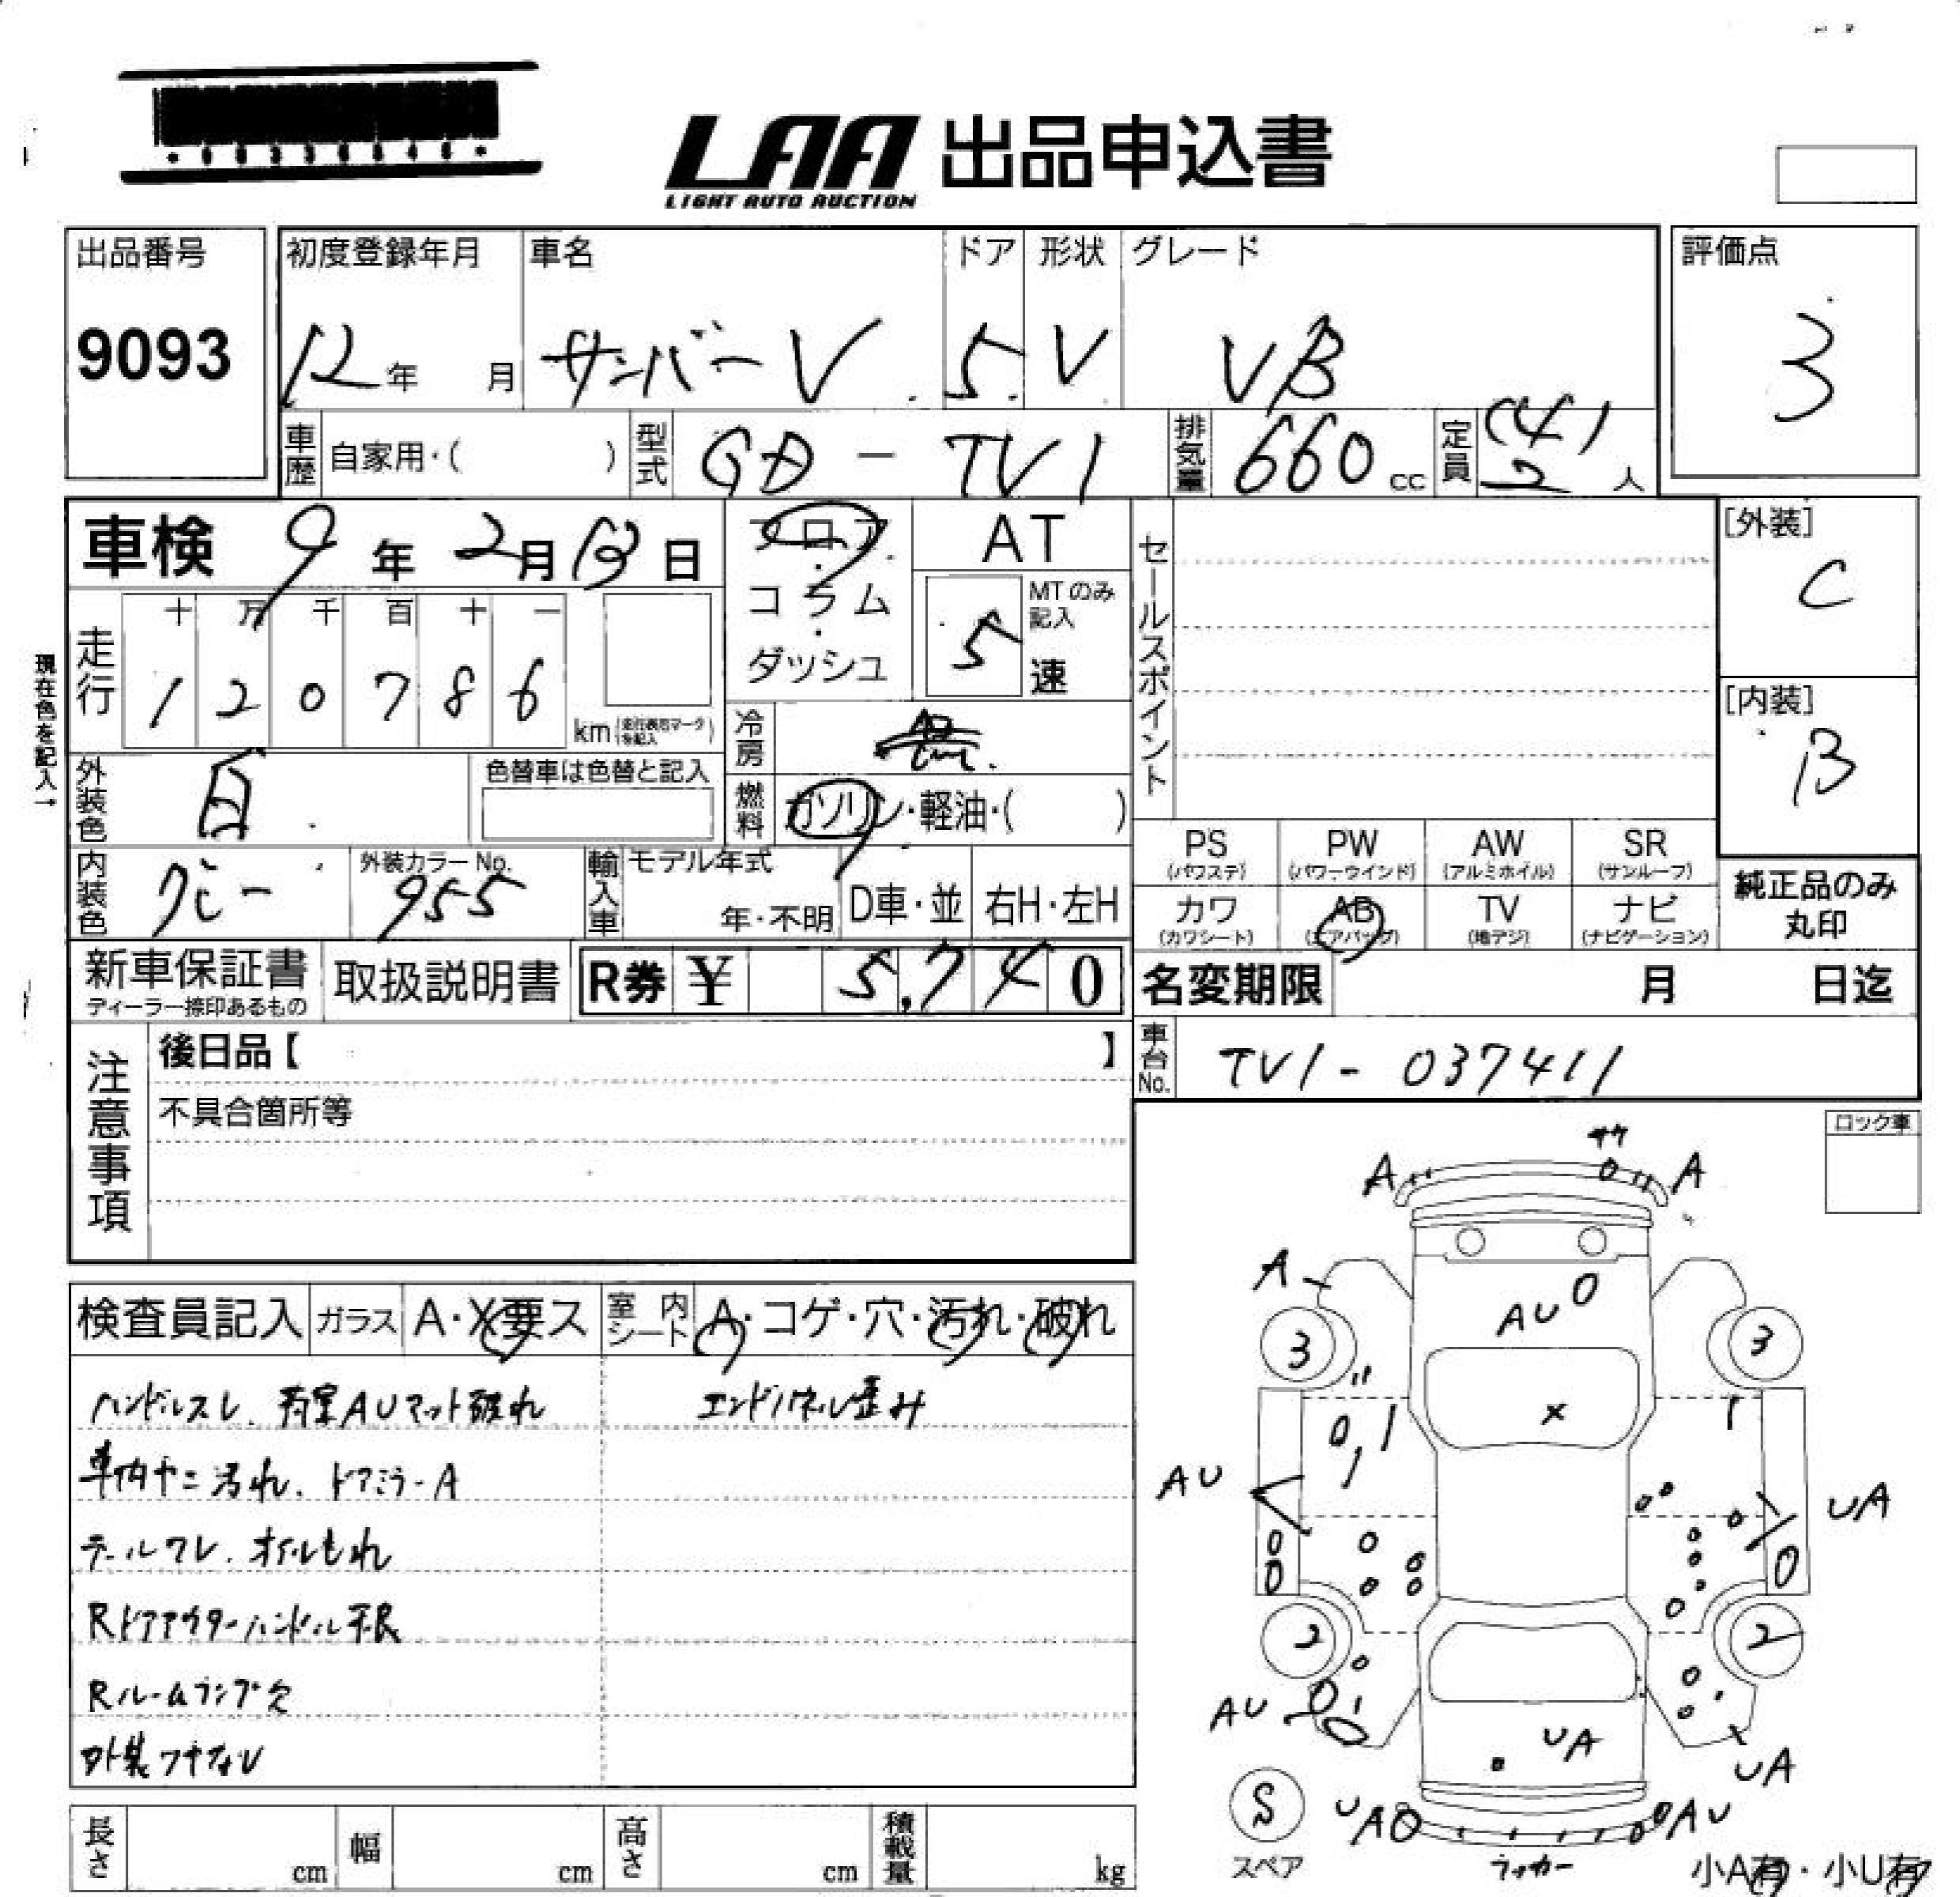 LAA 出品申込書
LIGHT AUTO AUCTION
出品番号 初度登録年月 車名 ドア 形状 グレード 評価点
9093 12年 月 サンバーV 5 V VB 3
車歴 自家用・( ) 型式 GD - TV1 排気量 660 cc 定員 2(4)人
車検 9年 2月 13日 フロア・コラム・ダッシュ AT
MTのみ記入 5速
セールスポイント
[外装] C
現在色を記入→
走行 十 万 千 百 十 一
1 2 0 7 8 6 km (走行表示マークを記入)
[内装] B
冷房
外装色 白 色替車は色替と記入
燃料 ガソリン・軽油・( )
内装色 グレー 外装カラーNo. 955 輸入車 モデル年式 年・不明 D車・並 右H・左H
PS (パワステ) PW (パワーウインド) AW (アルミホイル) SR (サンルーフ)
カワ (カワシート) AB (エアバッグ) TV (地デジ) ナビ (ナビゲーション)
純正品のみ丸印
新車保証書 ディーラー捺印あるもの 取扱説明書 R券 ¥ 5,740
名変期限 月 日迄
車台No. TV1-037411
注意事項
後日品【 】
不具合箇所等
ロック車
検査員記入 ガラス A・X要ス 室内シート A・コゲ・穴・汚れ・破れ
ハンドルスレ. 荷室AUマット破れ エンドパネル歪み
車内キズ汚れ. ドアミラーA
テールワレ. オイルもれ
Rドアアウターハンドル不良
Rルームランプ欠
外装ツヤなし
サケ
A A
A
AU
3 3
X
AU UA
2 2
AU UA
UA
S スペア UA AU
ラッカー
小A有・小U有
長さ cm 幅 cm 高さ cm 積載量 kg